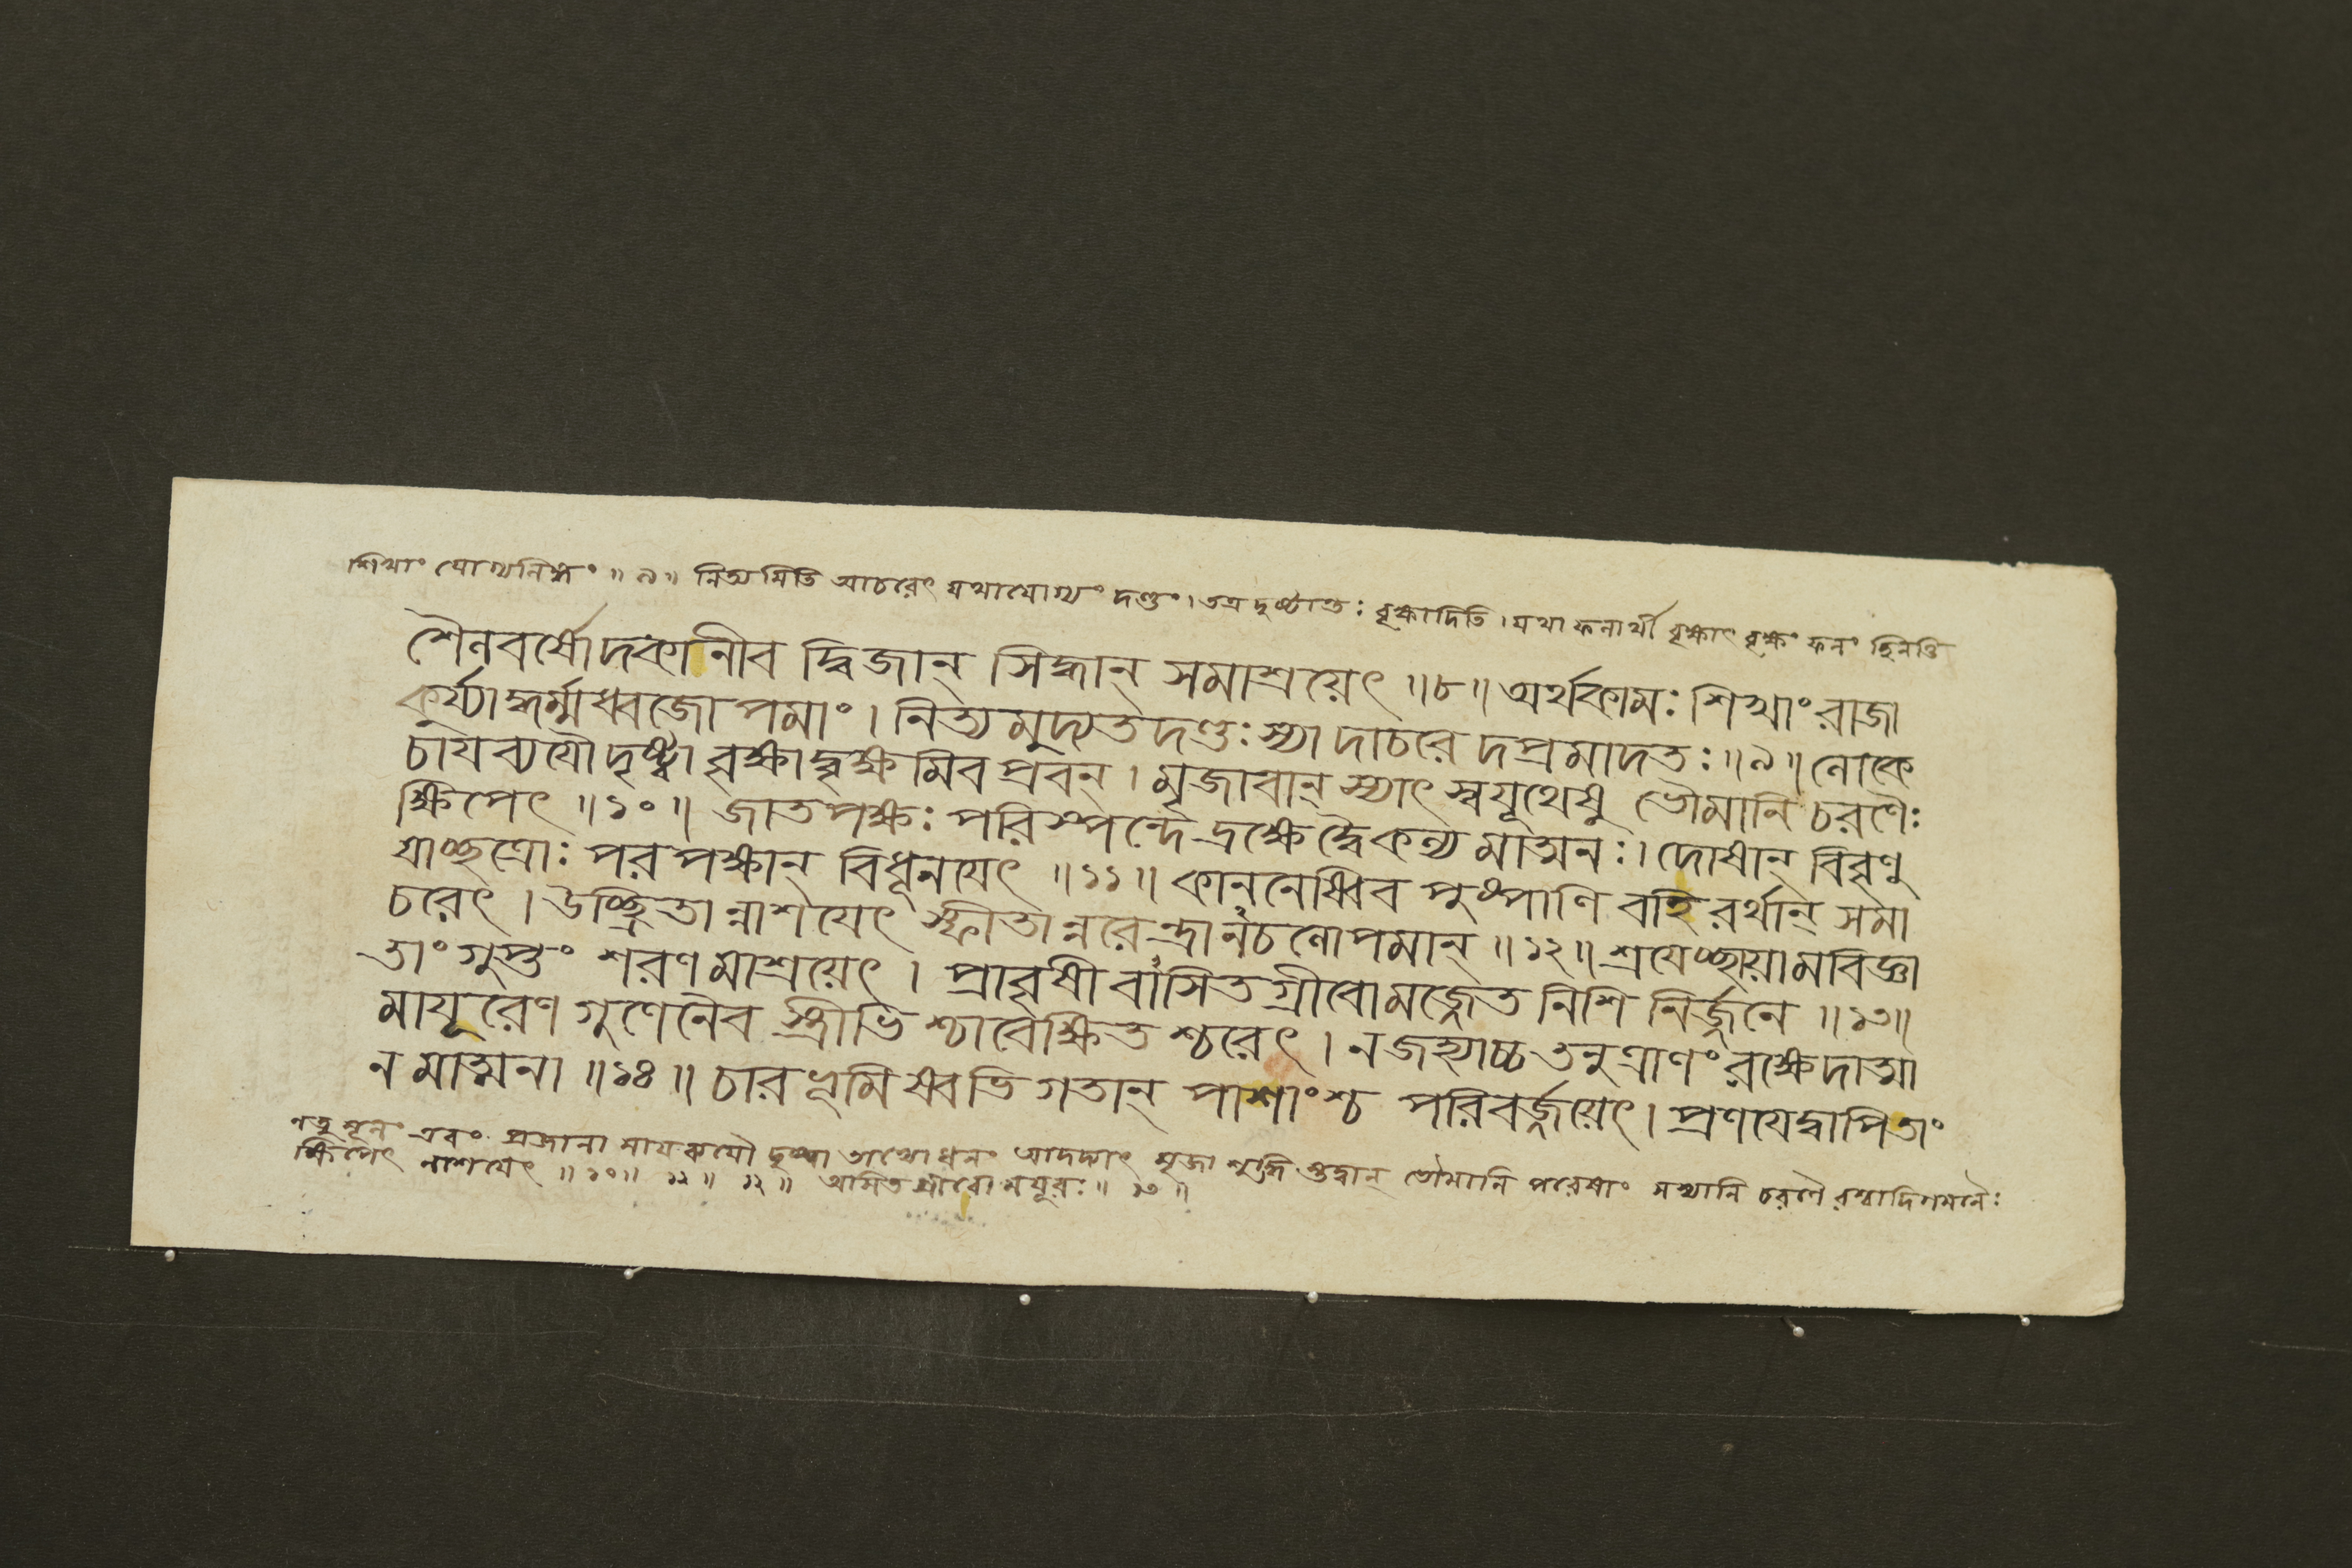 শিখাং যোগ্যনিহ্নং ॥ ৯॥ নিত্যমিতি আচরেৎ যথাযোগ্যং দণ্ডং। তত্র দৃষ্টান্তঃ বৃক্ষাদিতি । যথা ফলার্থী বৃক্ষাৎ বৃক্ষং ফলং ছিনত্তি
শৈলবর্ষোদকানীব দ্বিজান্ সিদ্ধান্ সমাশ্রয়েৎ ॥৮॥ অর্থকামঃ শিখাং রাজা
কুর্য্যাদ্ধর্ম্মধ্বজোপমাং । নিত্যমুদ্যতদণ্ডঃ স্যাদাচরেদপ্রমাদতঃ ॥৯॥ লোকে
চায়ব্যয়ৌ দৃষ্ট্বা বৃক্ষাদ্বৃক্ষমিবপ্লবন্ । মৃজাবান্ স্যাৎ স্বযূথেষু ভৌমানি চরণৈঃ
ক্ষিপেৎ ॥১০॥ জাতপক্ষঃ পরিস্পন্দেদ্রক্ষেদ্বৈকল্যমাত্মনঃ । দোষান্ বিবৃণু
য়াচ্ছত্রোঃ পরপক্ষান্ বিধূনয়েৎ ॥১১॥ কাননেষ্বিব পুষ্পাণি বহিরর্থান্ সমা
চরেৎ । উচ্ছ্রিতান্নাশয়েৎ স্ফীতান্নরেন্দ্রানচলোপমান্ ॥১২॥ শ্রয়েচ্ছায়ামবিজ্ঞা
তাং গুপ্তং শরণমাশ্রয়েৎ । প্রাবৃষীবাসিতগ্রীবো মজ্জেত নিশি নির্জ্জনে ॥১৩॥
মায়ূরেণ গুণেনৈব স্ত্রীভিশ্চাবেক্ষিতশ্চরেৎ । ন জহ্যাচ্চ তনুত্রাণং রক্ষেদাত্মা
নমাত্মনা ॥১৪॥ চারভূমিষ্বভিগতান্ পাশাংশ্চ পরিবর্জ্জয়েৎ । প্রণয়েদ্বাপি তাং
নতু মূলং এবং প্রজানামায়ব্যয়ৌ দৃষ্ট্বা তাভ্যো ধনং আদদ্যাৎ মৃজা শুদ্ধিস্তদ্বান্ ভৌমানি পরেষাং শস্যানি চরণৈরশ্বাদিগমনৈঃ
ক্ষিপেৎ নাশয়েৎ ॥ ১০॥ ১১॥ ১২॥ অসিতগ্রীবো ময়ূরঃ ॥ ১৩ ॥